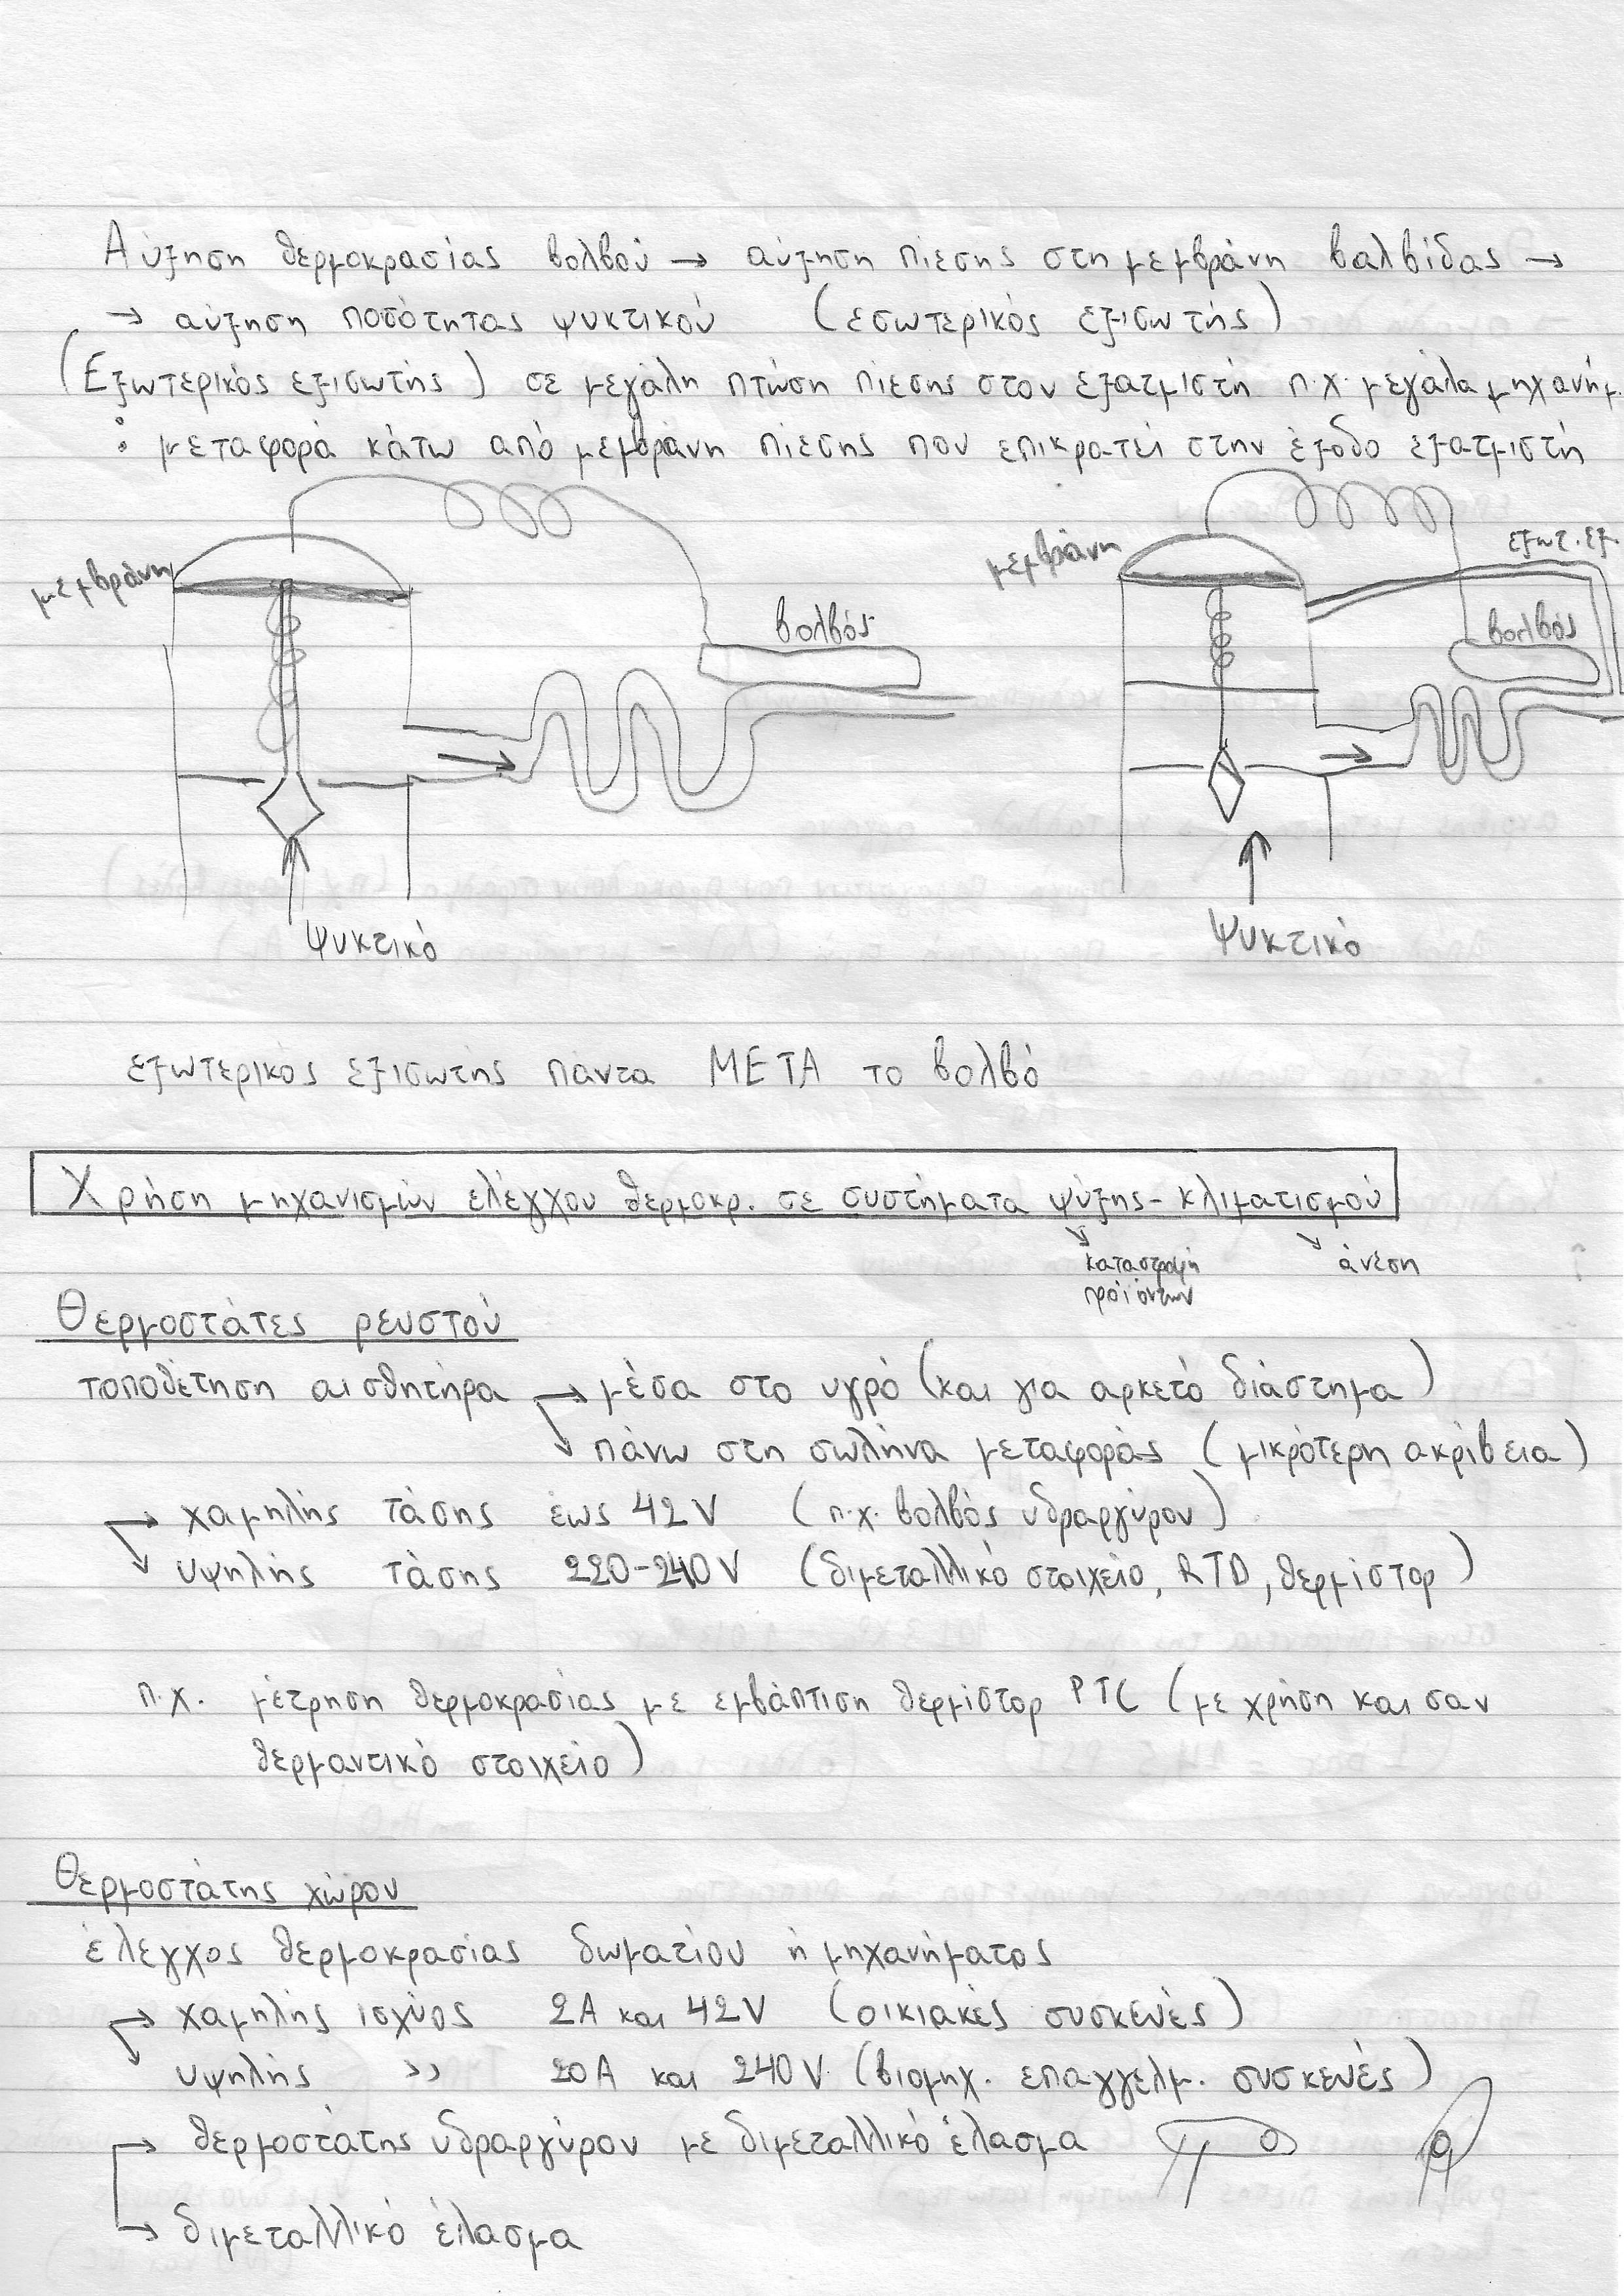 Αύξηση θερμοκρασίας βολβού → αύξηση πίεσης στη μεμβράνη βαλβίδας →
→ αύξηση ποσότητας ψυκτικού (εσωτερικός εξισωτής)
(Εξωτερικός εξισωτής) σε μεγάλη πτώση πίεσης στον εξατμιστή π.χ. μεγάλα μηχανήμ.
: μεταφορά κάτω από μεμβράνη πίεσης που επικρατεί στην έξοδο εξατμιστή
μεμβράνη
βολβός
ψυκτικό
μεμβράνη
εξωτ. εξ.
βολβός
ψυκτικό
εξωτερικός εξισωτής πάντα ΜΕΤΑ το βολβό
Χρήση μηχανισμών ελέγχου θερμοκρ. σε συστήματα ψύξης - κλιματισμού
καταστροφή
προϊόντων
άνεση
Θερμοστάτες ρευστού
τοποθέτηση αισθητήρα → μέσα στο υγρό (και για αρκετό διάστημα)
πάνω στη σωλήνα μεταφοράς (μικρότερη ακρίβεια)
→ χαμηλής τάσης έως 42V (π.χ. βολβός υδραργύρου)
υψηλής τάσης 220-240V (διμεταλλικό στοιχείο, RTD, θερμίστορ)
π.χ. μέτρηση θερμοκρασίας με εμβάπτιση θερμίστορ PTC (με χρήση και σαν
θερμαντικό στοιχείο)
Θερμοστάτης χώρου
έλεγχος θερμοκρασίας δωματίου ή μηχανήματος
→ χαμηλής ισχύος 2Α και 42V (οικιακές συσκευές)
υψηλής >> 20Α και 240V (βιομηχ. επαγγελμ. συσκευές)
→ θερμοστάτης υδραργύρου με διμεταλλικό έλασμα
→ διμεταλλικό έλασμα